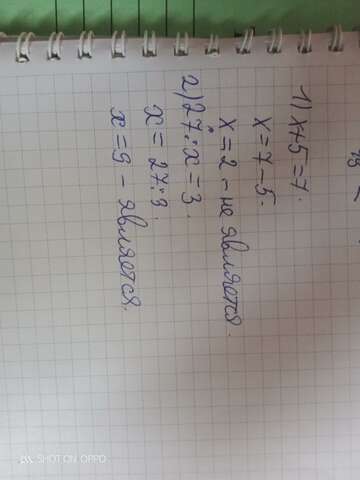 1) x+5=7.
x=7-5.
x=2 - не является.
2) 27:x=3.
x=27:3.
x=9 - является.
SHOT ON OPPO